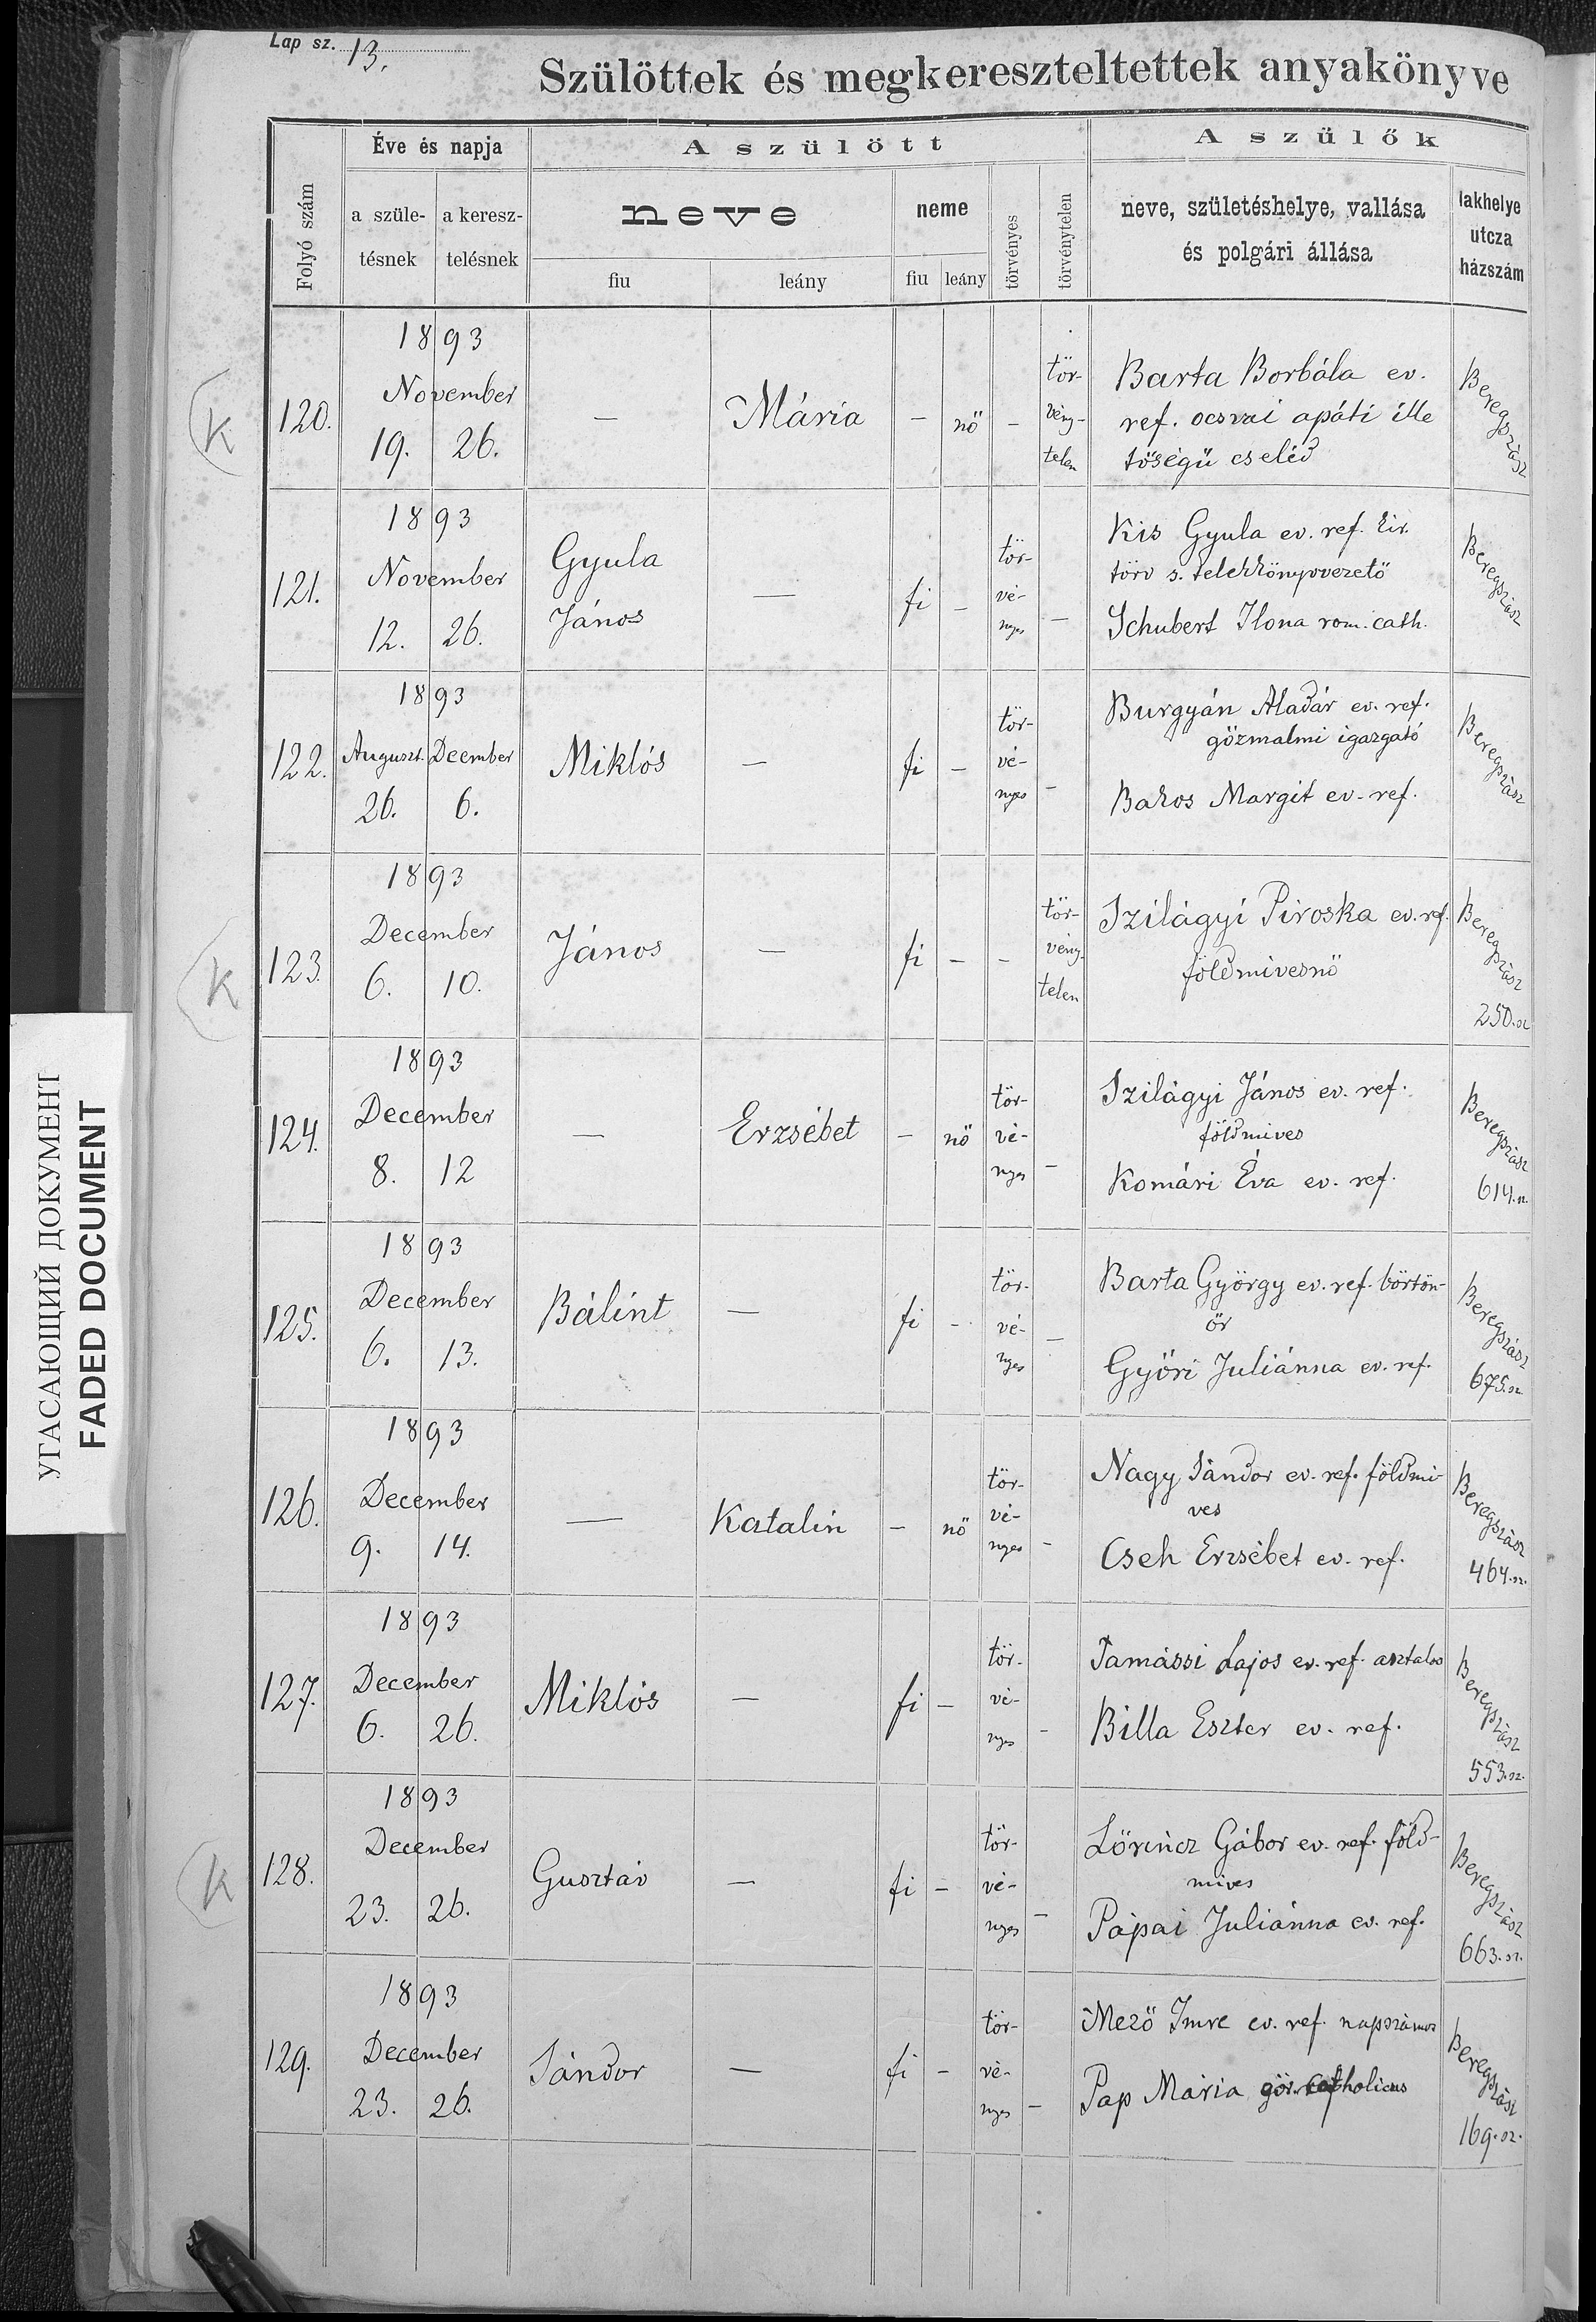 Lap sz. 13.
Szülöttek és megkereszteltettek anyakönyve
Folyó szám
Éve és napja
a szüle-
tésnek
a keresz-
telésnek
A szülött
neve
fiu
leány
neme
fiu
leány
törvényes
törvénytelen
A szülők
neve, születéshelye, vallása
és polgári állása
lakhelye
utcza
házszám
K
120.
1893
November
19. 26.
—
Mária
-
nö
-
tör-
vény-
telen
Barta Borbála ev.
ref. ocsvai apáti ille
tőségű cseléd
Beregszász
121.
1893
November
12. 26.
Gyula
János
—
fi
-
tör-
vé-
nyes
-
Kis Gyula ev. ref. kir.
törv s. telekkönyvvezető
Schubert Ilona rom. cath.
Beregszász
122.
1893
Auguszt. December
26. 6.
Miklós
—
fi
-
tör-
vé-
nyes
-
Burgyán Aladár ev. ref.
gőzmalmi igazgató
Bakos Margit ev. ref.
Beregszász
K
123.
1893
December
6. 10.
János
—
fi
-
-
tör-
vény-
telen
Szilágyi Piroska ev. ref.
földmivesnö
Beregszász
250. sz
124.
1893
December
8. 12
—
Erzsébet
-
nö
tör-
vé-
nyes
-
Szilágyi János ev. ref.
földmives
Komári Éva ev. ref.
Beregszász
614. sz.
125.
1893
December
6. 13.
Bálint
—
fi
-
tör-
vé-
nyes
-
Barta György ev. ref. börtön-
őr
Győri Juliánna ev. ref.
Beregszász
675. sz
126.
1893
December
9. 14.
—
Katalin
-
nö
tör-
vé-
nyes
-
Nagy Sándor ev. ref. földmi-
ves
Cseh Erzsébet ev. ref.
Beregszász
464. sz.
127.
1893
December
6. 26.
Miklós
—
fi
-
tör-
vé-
nyes
-
Tamássi Lajos ev. ref. asztalos
Billa Eszter ev. ref.
Beregszász
553. sz.
K
128.
1893
December
23. 26.
Gusztáv
—
fi
-
tör-
vé-
nyes
-
Lőrincz Gábor ev. ref. föld-
mives
Pápai Juliánna ev. ref.
Beregszász
663. sz.
129.
1893
December
23. 26.
Sándor
—
fi
-
tör-
vé-
nyes
-
Mező Imre ev. ref. napszámos
Pap Mária gör. catholicus
Beregszász
169. sz.
УГАСАЮЩИЙ ДОКУМЕНТ
FADED DOCUMENT